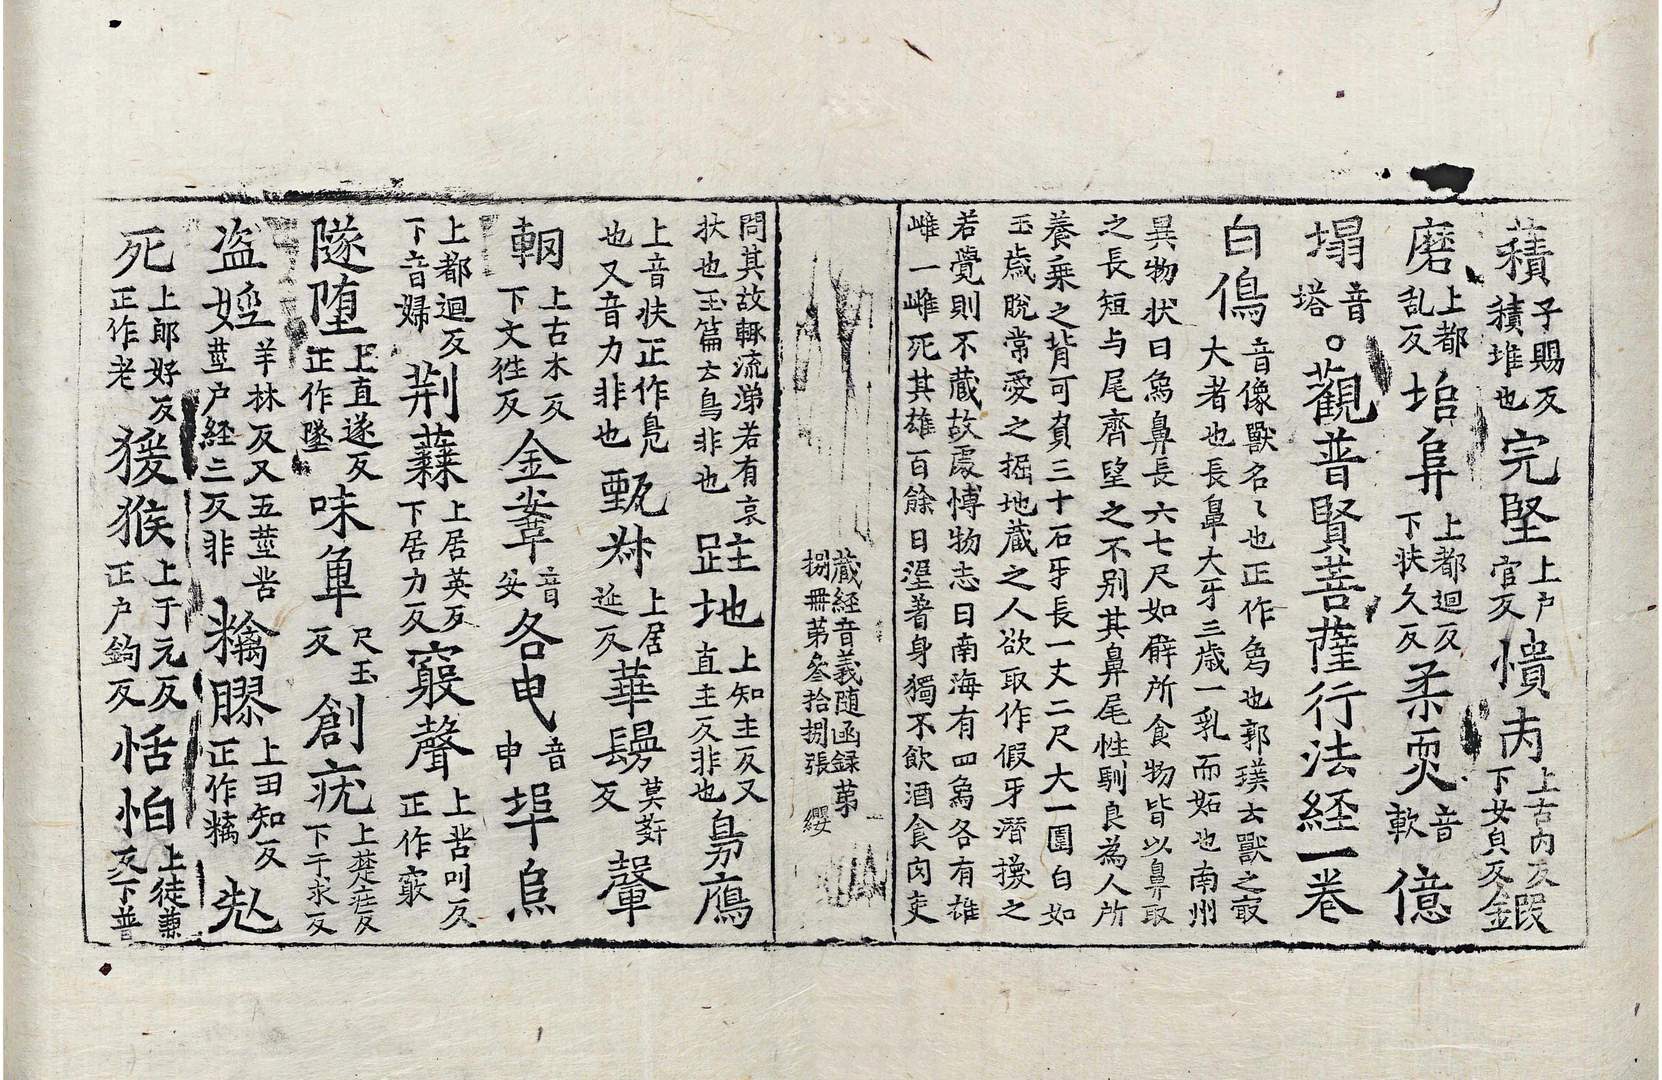 𧂐子賜反積堆也完堅上戸官反憒丙上古內反下女皃反鍜
磨上都乱反塠阜上都廻反下扶久反柔耎音軟億
塌音塔○觀普賢菩薩行法経一卷
白𩿨音像獸名〻也正作𤉡也郭璞云獸之㝡大者也長鼻大牙三歳一乳而妬也南州
異物状曰𤉡鼻長六七尺如臂所食物皆以鼻取之長短与尾齊望之不别其鼻尾性馴良為人所
養乗之背可負三十石牙長一丈二尺大一圍白如玉歳脫常愛之掘地蔵之人欲取作假牙潜擾之
若覺則不蔵故處愽物志曰南海有四𤉡各有雄雌一雌死其雄百餘日𡋯著身獨不飲酒食肉吏
蔵経音義随函録苐捌冊苐叄拾捌張 纓
問其故輙流涕若有哀扶也玉篇云鳥非也跓地上知主反又直主反非也𠒎鴈
上音扶正作鳬也又音力非也甄𠦑上居延反華鬘莫𫟒反聻
輞上古木反下文徃反金鞌音安各申音申埠烏
上都廻反下音婦荆蕀上居英反下居力反竅聲上苦叫反正作竅
隧堕上直遂反正作墜味𠦴尺玉反創疣上楚庄反下于求反
盗婬羊林反又五莖苦莖户経二反非黐膠上田知反正作𪏭尪
死上郎好反正作老猨猴上于元反正户鈎反恬怕上徒兼反下普